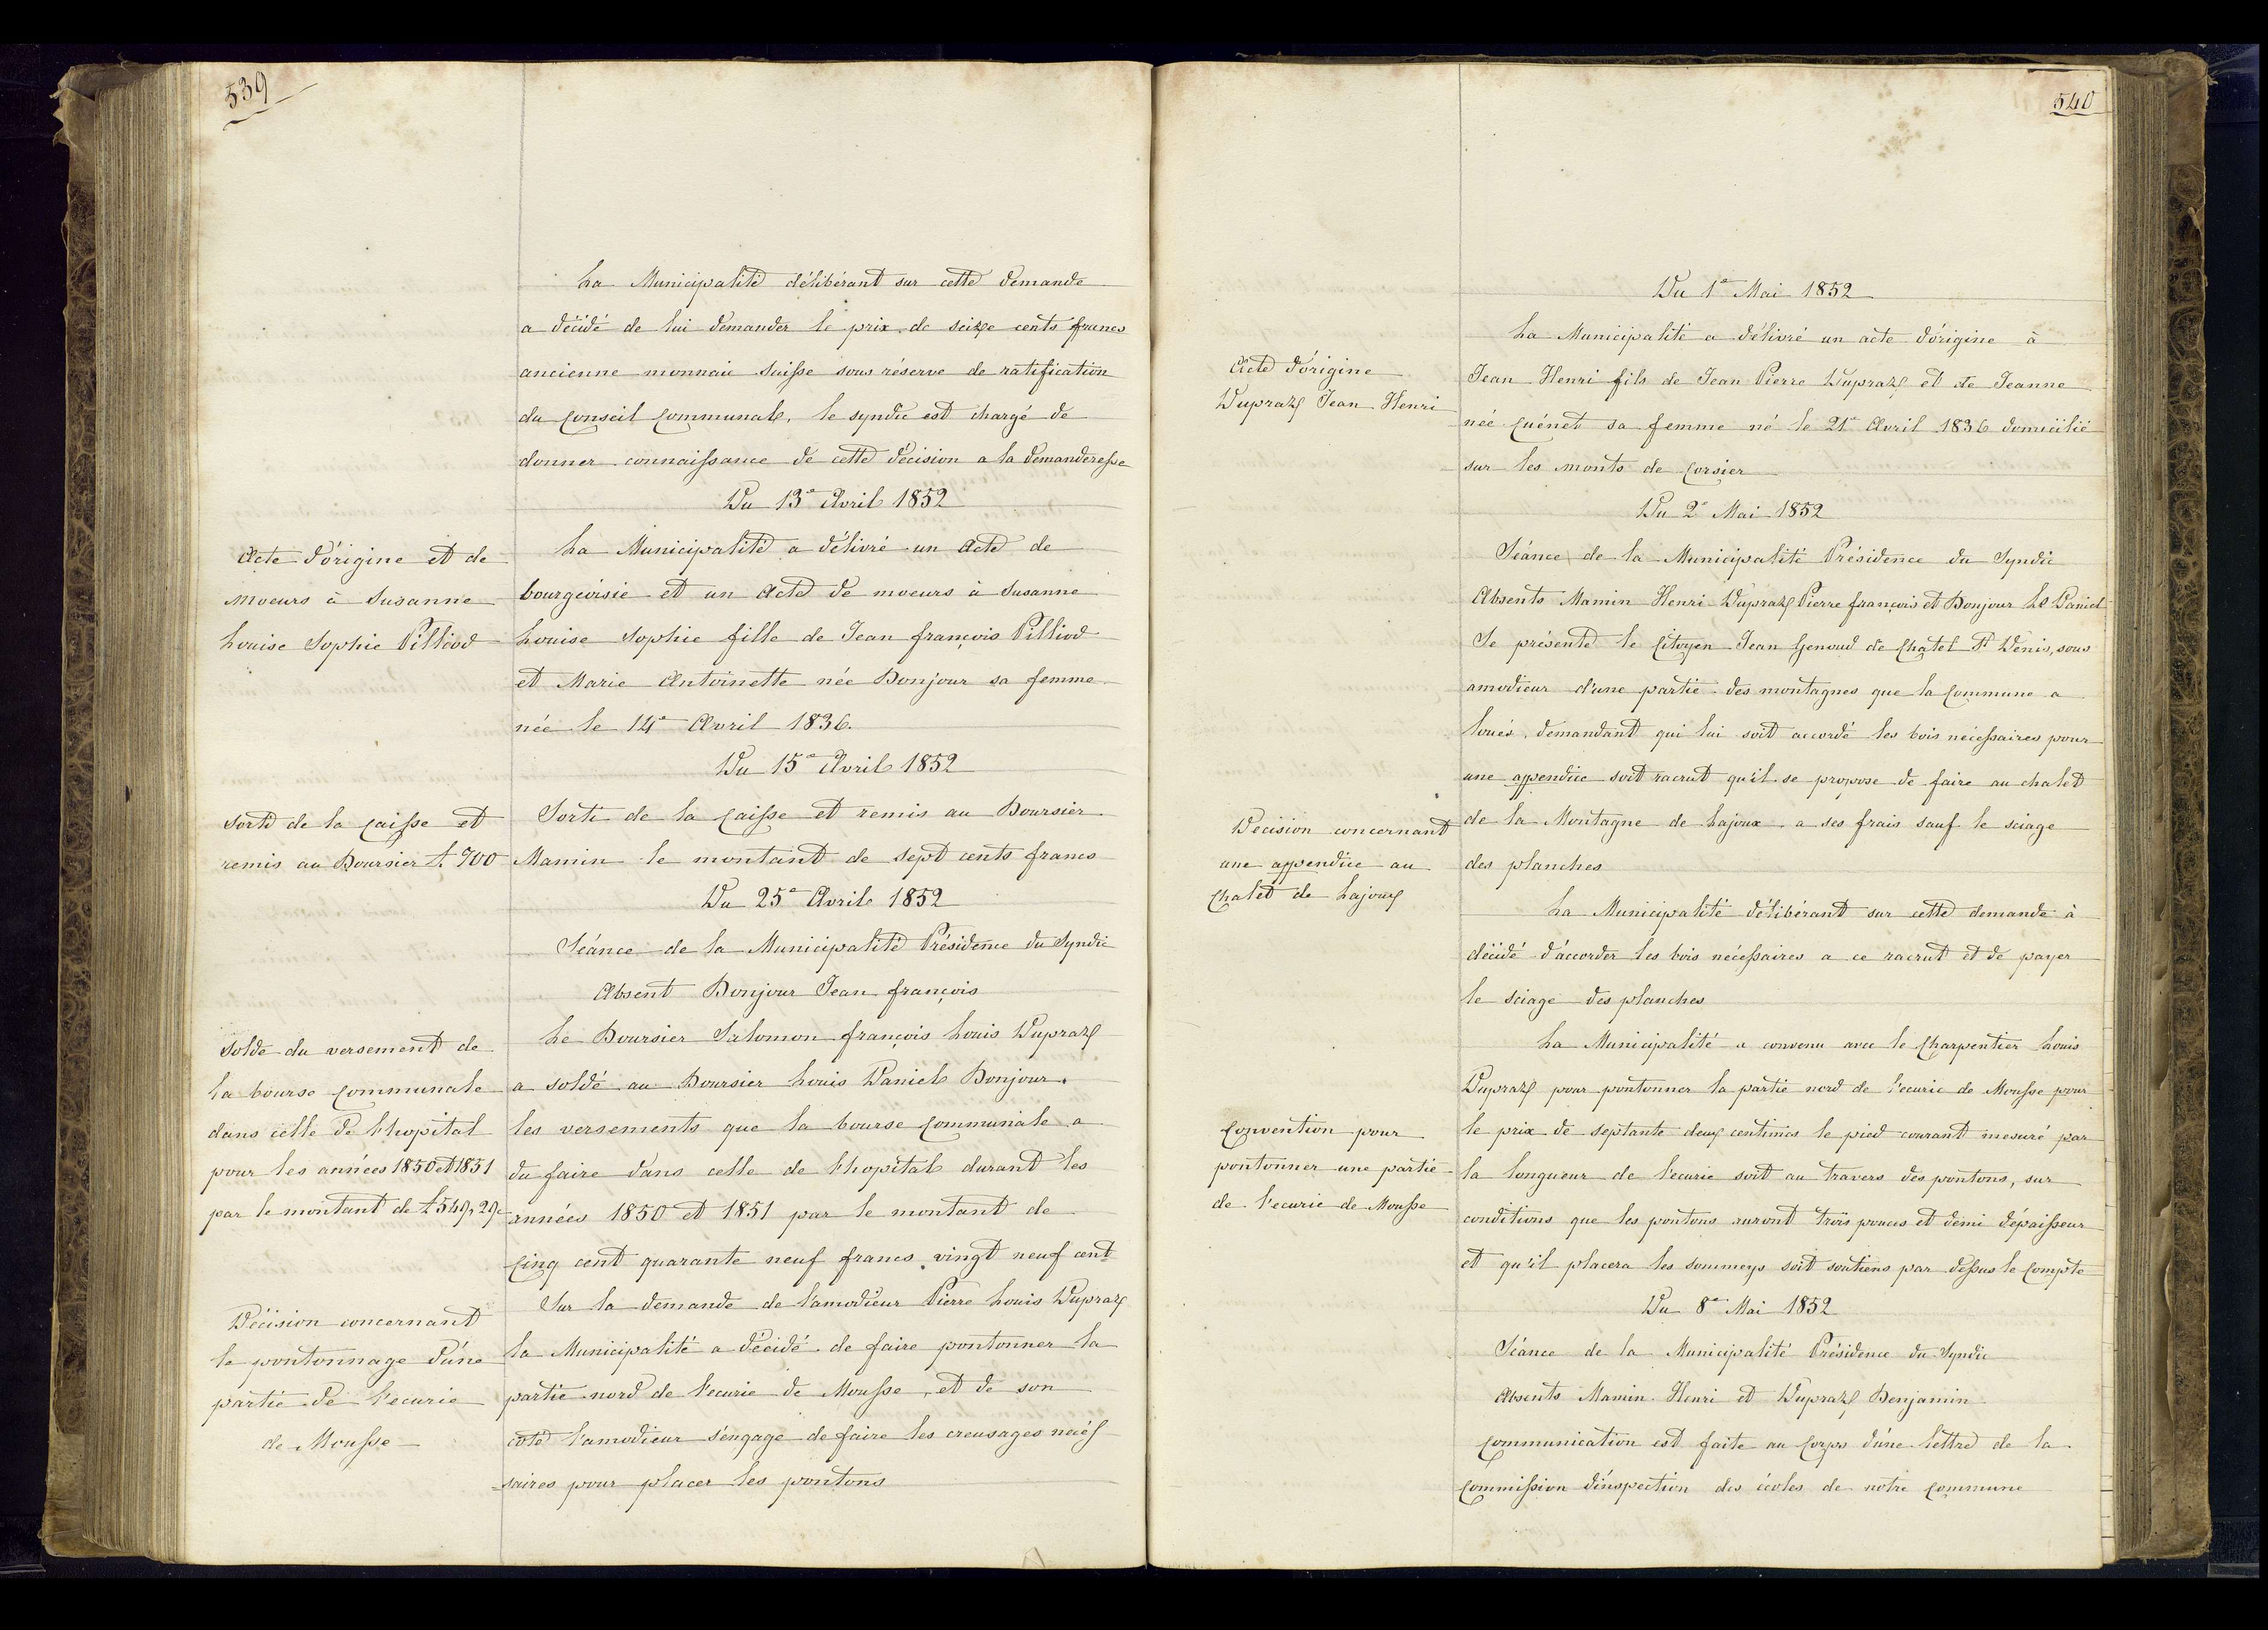 539
La Municipalité délibérant sur cette demande
a décidé de lui demander le prix de seize cents francs
ancienne monnaie Suisse sous réserve de ratification
du Conseil Communal, le syndic est chargé de
donner connaissance de cette décision a la demanderesse
Du 13e Avril 1852
Acte d'origine et de
moeurs à Susanne
Louise Sophie Pilliod
La Municipalité a délivré un Acte de
bourgeoisie et un Acte de moeurs à Susanne
Louise Sophie fille de Jean françois Pilliod
et Marie Antoinette née Bonjour sa femme
née le 14e Avril 1836.
Du 15e Avril 1852
Sorti de la Caisse et
remis au Boursier f. 700
Sorti de la Caisse et remis au Boursier
Mamin le montant de sept cents francs
Du 25e Avril 1852
Séance de la Municipalité Présidence du Syndic
Absent Bonjour Jean françois
Solde du versement de
la bourse Communale
dans celle de l'hopital
pour les années 1850 et 1851
par le montant de f 549,29c
Le Boursier Salomon françois Louis Dupraz
a soldé au Boursier Louis Daniel Bonjour.
les versements que la bourse Communale a
du faire dans celle de l'hopital durant les
années 1850 et 1851 par le montant de
Cinq cent quarante neuf francs vingt neuf cent
Décision concernant
le pontonnage d'une
partie de l'ecurie
de Mousse
Sur la demande de l'amodieur Pierre Louis Dupraz
la Municipalité a décidé de faire pontonner la
partie nord de l'ecurie de Mousse, et de son
coté l'amodieur s'engage de faire les creusages néces
=saires pour placer les pontons
540
Du 1e Mai 1852
Acte d'origine
Dupraz Jean Henri
La Municipalité a délivré un acte d'origine à
Jean Henri fils de Jean Pierre Dupraz et de Jeanne
née Cuénet sa femme né le 21e Avril 1836 domicilié
sur les monts de Corsier
Du 2e Mai 1852
Séance de la Municipalité Présidence du Syndic
Absents Mamin Henri Dupraz Pierre françois et Bonjour Ls Daniel
Se présente le Citoyen Jean Genoud de Chatel St Denis, sous
amodieur d'une partie des montagnes que la Commune a
loués, demandant qui lui soit accordé les bois nécessaires pour
une appendice soit racrut qu'il se propose de faire au chalet
de la Montagne de Lajoux a ses frais sauf le sciage
des planches
Decision concernant
une appendice au
Chalet de Lajoux
La Municipalité délibérant sur cette demande à
décidé d'accorder les bois nécessaires a ce racrut et de payer
le sciage des planches
Convention pour
pontonner une partie
de l'ecurie de Mousse
La Municipalité a convenu avec le Charpentier Louis
Dupraz pour pontonner la partie nord de l'ecurie de Mousse pour
le prix de septante deux centimes le pied courant mesuré par
la longueur de l'ecurie soit au travers des pontons, sur
conditions que les pontons auront trois pouces et demi d'épaisseur
et qu'il placera les sommeys soit soutiens par dessus le Compte
Du 8e Mai 1852
Séance de la Municipalité Présidence du Syndic
Absents Mamin Henri et Dupraz Benjamin
Communication est faite au Corps d'une lettre de la
Commission d'inspection des écoles de notre Commune